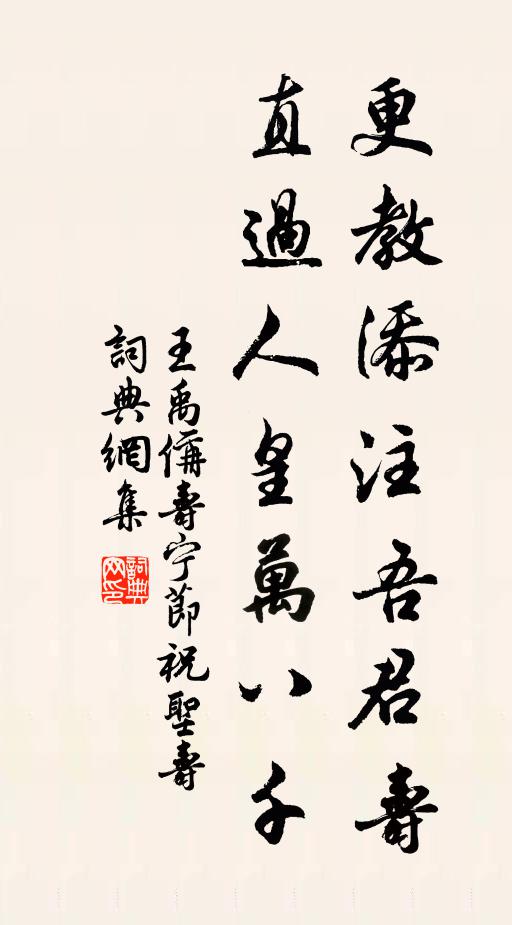 更教添注吾君壽
直過人皇萬八千
王禹偁壽宁節祝聖壽
詞典網集
詞典网印